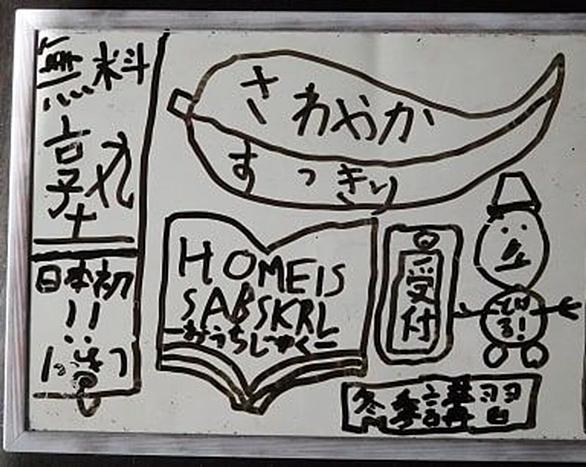 無料
塾
日本初
!!
さわやか
すっきり
HOMEIS
SABSKRL
ーおうちじゅくー
受付
冬季講習